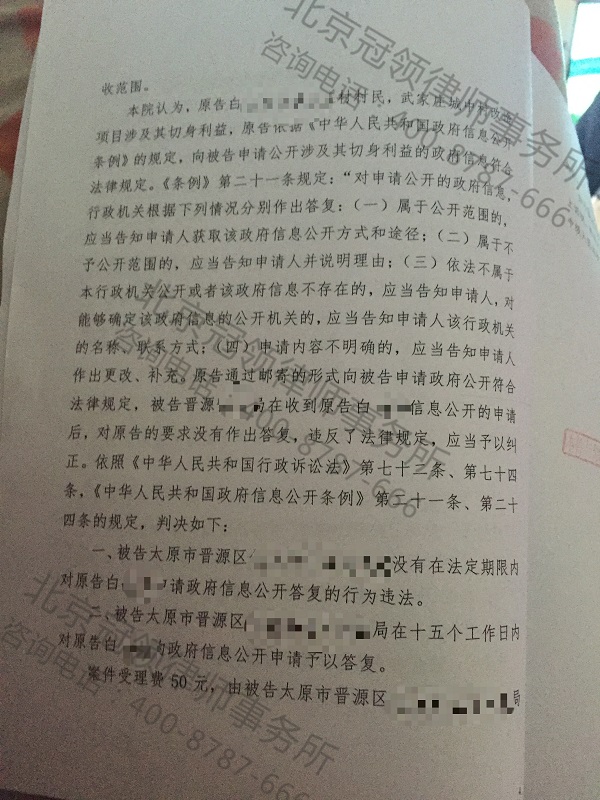 收范围。
本院认为，原告白 村村民，武家庄城中村改造
项目涉及其切身利益，原告依据《中华人民共和国政府信息公开
条例》的规定，向被告申请公开涉及其切身利益的政府信息符合
法律规定。《条例》第二十一条规定：“对申请公开的政府信息，
行政机关根据下列情况分别作出答复：（一）属于公开范围的，
应当告知申请人获取该政府信息公开方式和途径；（二）属于不
予公开范围的，应当告知申请人并说明理由；（三）依法不属于
本行政机关公开或者该政府信息不存在的，应当告知申请人，对
能够确定该政府信息的公开机关的，应当告知申请人该行政机关
的名称、联系方式；（四）申请内容不明确的，应当告知申请人
作出更改、补充。原告通过邮寄的形式向被告申请政府公开符合
法律规定，被告晋源 局在收到原告白 信息公开的申请
后，对原告的要求没有作出答复，违反了法律规定，应当予以纠
正。依照《中华人民共和国行政诉讼法》第七十二条、第七十四
条，《中华人民共和国政府信息公开条例》第二十一条、第二十
四条的规定，判决如下：
一、被告太原市晋源区 没有在法定期限内
对原告白 申请政府信息公开答复的行为违法。
二、被告太原市晋源区 局在十五个工作日内
对原告白 的政府信息公开申请予以答复。
案件受理费 50 元，由被告太原市晋源区 局
北京冠领律师事务所
咨询电话：400-8787-666
北京冠领律师事务所
咨询电话：400-8787-666
北京冠领律师事务所
咨询电话：400-8787-666